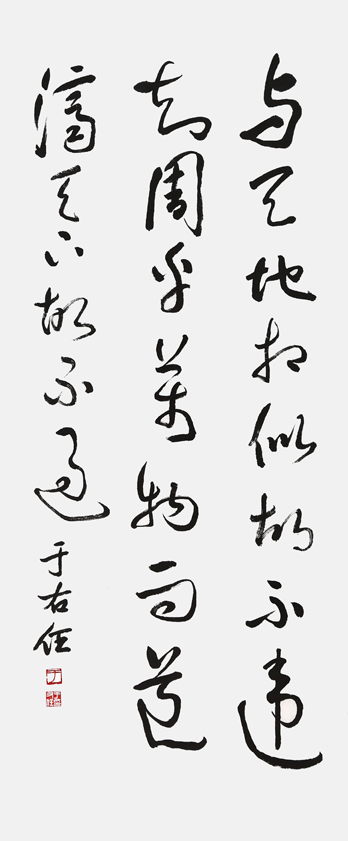 与天地相似故不違
知周乎萬物而道
濟天下故不過
于右任